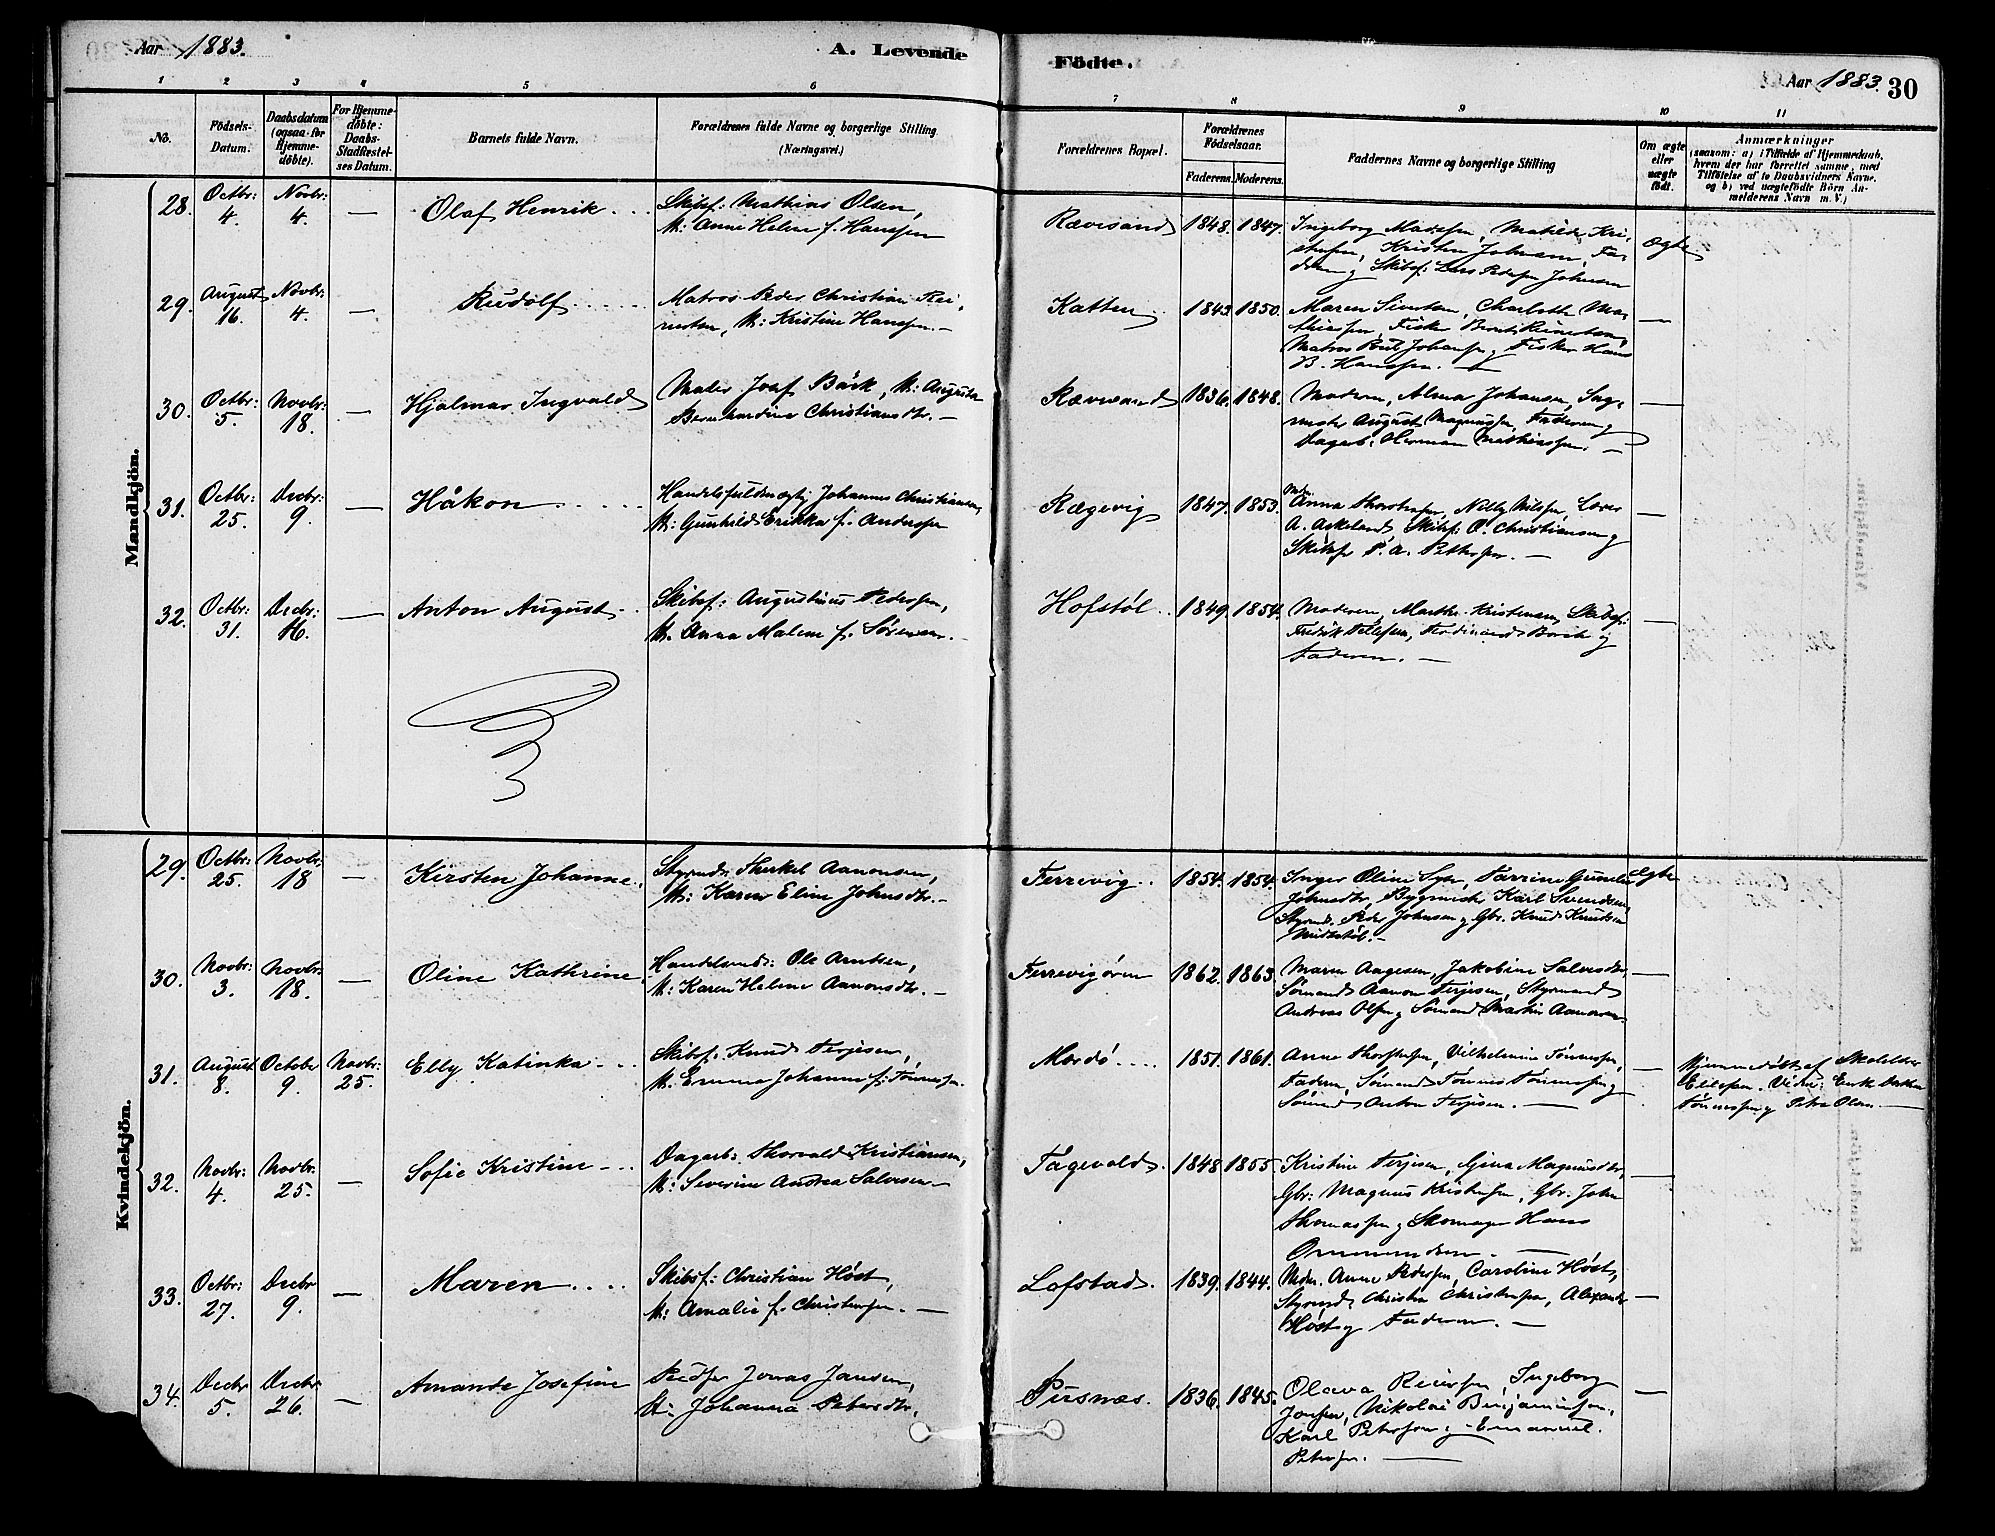 Aar 1883.
A. Levende Fødte.
Aar 1883. 30
1 2 3 4 5 6 7 8 9 10 11
No.
Fødsels-Datum.
Daabsdatum (ogsaa for Hjemme-døbte).
For Hjemme-døbte: Daabs-Stadfæstel-ses Datum.
Barnets fulde Navn.
Forældrenes fulde Navne og borgerlige Stilling (Næringsvei.)
Forældrenes Bopæl.
Forældrenes Fødselsaar.
Faderens. Moderens.
Faddernes Navne og borgerlige Stilling
Om ægte eller uægte født.
Anmærkninger
(saasom: a) i Tilfælde af Hjemmedaab, hvem der har forrettet samme, med Tilføielse af to Daabsvidners Navne, og b) ved uægtefødte Børn An-melderens Navn m. V.)
Mandkjön.
28. Octbr: 4. Novbr: 4. — Olaf Henrik
Skibsf: Mathias Olsen,
M: Anne Helene f. Hanssen
Rævesand 1848. 1847.
Ingeborg Madsen, Matilde Kri-
stensen, Kristen Johnsen, Fa-
deren og Skibsf: Lars Peder Johnsen
ægte
29. August 16. Novbr: 4. — Rudolf
Matros Peder Christian Rei-
nertsen, M: Kristine Hanssen.—
Katten 1843. 1850.
Maren Sivertsen, Charlotte Ma-
thiessen, Fisker Berent Reinertsen,
Matros Johansen, Fisker Hans
B. Hanssen. —
30. Octbr: 5. Novbr: 18. — Hjalmar Ingvald
Maler Josef Bäck, M: Augusta
Bernhardine Christiansdtr. —
Rævesand 1836. 1848.
Moderen, Alma Johansen, Sag-
mester August Magnussen, Faderen og
Dagarb. Herman Mathiassen. —
31. Octbr: 25. Decbr: 9. — Håkon
Handelsfuldmægtig Johannes Christiansen,
M: Gunhild Erikka f. Andersen
Rægevig 1847. 1853.
Anna Thorstensen, Nilly Nilsen, Lærer
A. Askeland, Skibsf: O. Christiansen og
Skibsf P. A. Pettersen. —
32. Octbr: 31. Decbr: 16. — Anton August
Skibsf: Augustinus Pedersen,
M. Anna Malene f. Sørensen.
Hofstøl 1849. 1854.
Moderen, Marthe Kristensen, Skibsf:
Fredrik Tellefsen, Ferdinand og
Faderen. —
Kvindekjön.
29. Octbr: 25. Novbr: 18 — Kirsten Johanne
Styrmd: Therkel Aanonsen,
M: Karen Eline Johnsdtr. —
Ferrevig 1854. 1854.
Inger Oline Syv, Tarrine Gunelie
Johnsdtr, Bygmester Karl Svendsen,
Styrmd. Peder Johnsen og Gbr. Knud Knudsen
Midtstøl. —
Egte
30. Novbr: 3. Novbr: 18. — Oline Kathrine
Handelsmd: Ole Arntsen,
M: Karen Helene Aanonsdtr. —
Ferrevigøren 1862. 1863.
Maren Aagesen, Jakobine Salvesdtr,
Sømand Aanon Terjesen, Styrmand
Andreas Olsen og Sømand Martin Aanonsen.
31. August 8. October 9. Novbr: 25. Elly Katinka
Skibsf: Knud Terjesen,
M. Emma Johanne f. Tønnessen.
Merdø 1851. 1861.
Anne Thorstensen, Vilhelmine Tønnessen,
Faderen, Sømand Tønnes Tønnessen og
Sømand Anton Terjesen. —
Hjemmedøbt af Skolelærer
Ellefsen. Vidner:
Tønnessen og Petra Olsen. —
32. Novbr: 4. Novbr. 25. — Sofie Kristine
Dagarb: Thorvald Kristiansen,
M: Severine Andrea Salvesen —
Fagevold 1848 1855.
Kristine Terjesen, Gina Magnusdtr,
Gbr: Magnus Kristensen, Gbr. John
Thomassen og Skomager Hans
Ommundsen. —
33. Octbr: 27. Decbr 9. — Maren
Skibsf: Christian Høst,
M: Amalie f. Christensen. —
Lofstad 1839. 1844.
Anne Pedersen, Caroline Høst,
Styrmd, Christen Christensen, Alexander
Høst og Faderen. —
34. Decbr 5. Decbr 26. — Amanda Josefine
Jonas Jansen,
M: Johanna Petersdtr.
Pusnæs. 1836. 1845.
Olava Reiersen, Ingeborg
Jonsen, Nikolai Benjaminsen,
Karl Petersen og Emanuel
Petersen. —